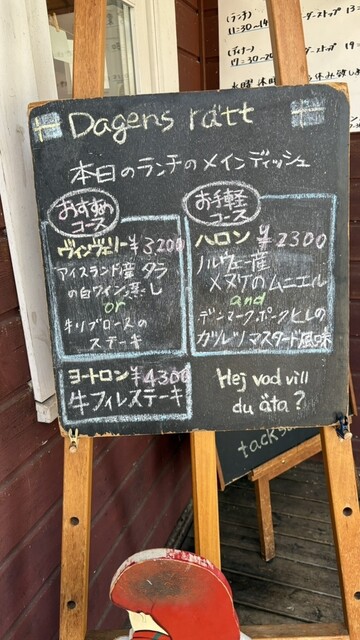 (ランチ)
11:30~14
ダーストップ 13:
(ディナー)
Dagens rätt
本日のランチのメインディッシュ
おすすめ
コース
ヴィンヴェリー ¥3200
アイスランド産 タラ
の白ワイン蒸し
or
牛リブロースの
ステーキ
お手軽
コース
ハロン ¥2300
ノルウェー産
メヌケのムニエル
and
デンマークポークヒレの
カツレツマスタード風味
ヨートロン ¥4300
牛フィレステーキ
Hej vad vill
du äta?
tack